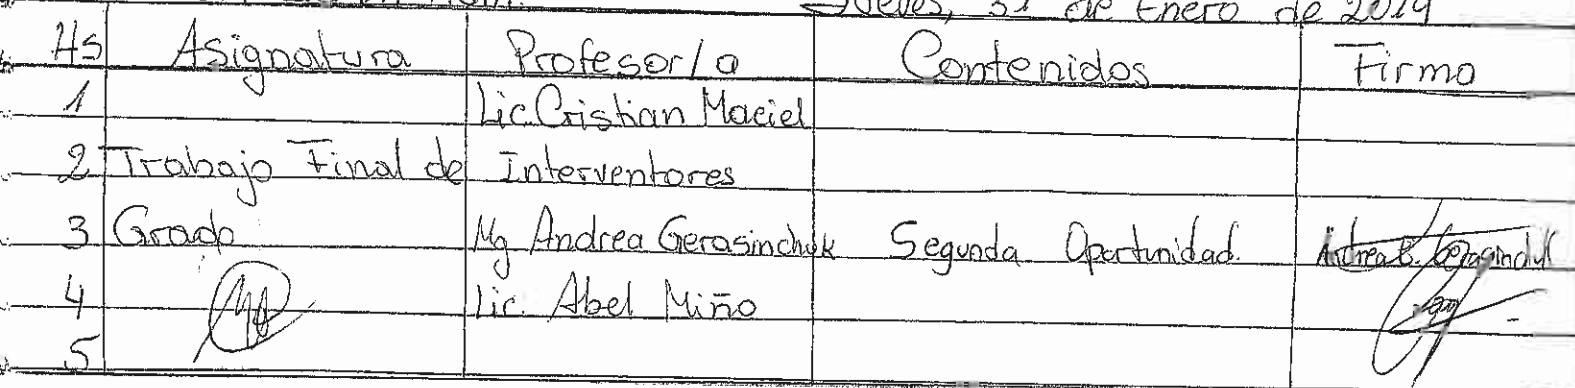 Jueves, 31 de Enero de 2019
Hs Asignatura Profesor/a Contenidos Firma
1 Lic. Cristian Maciel
2 Trabajo Final de Interventores
3 Grado Mg Andrea Gerasinchuk Segunda Oportunidad. Andrea E. Gerasinchuk
4 Lic. Abel Miño
5